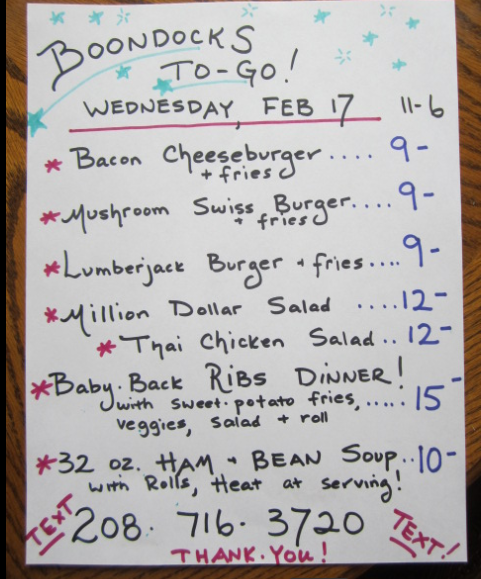 BOONDOCKS
TO-GO!
WEDNESDAY, FEB 17 11-6
* Bacon Cheeseburger .... 9-
+ fries
* Mushroom Swiss Burger.... 9-
+ fries
* Lumberjack Burger + fries.... 9-
* Million Dollar Salad .... 12-
* Thai Chicken Salad.. 12-
* Baby.Back RIBS DINNER!
with sweet.potato fries, ..... 15-
veggies, salad + roll
* 32 oz. HAM + BEAN Soup.. 10-
with Rolls, Heat at serving!
TEXT 208. 716. 3720 TEXT!
THANK.YOU!